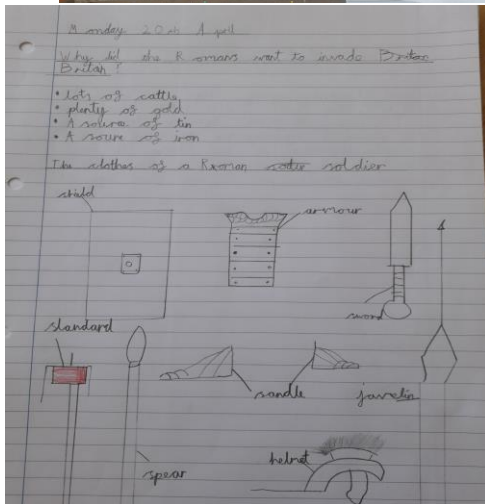 Monday 20th April
Why did the Romans want to invade Briton
Britan?
• lots of cattle
• plenty of gold
• A source of tin
• A soure of iron
The clothes of a Roman soldier
shield
armour
sword
standard
sandle
javelin
helmet
spear